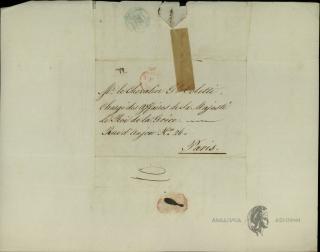 Mr. le Chevalier G. Coletti
Chargé des Affaires de Sa Majesté
le Roi de la Grèce
Rue d'Anjou No. 26.
Paris.
ΑΚΑΔΗΜΙΑ ΑΘΗΝΩΝ